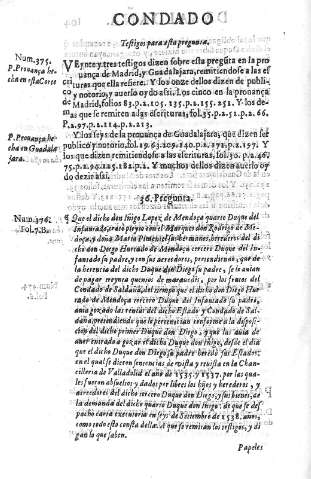 CONDADO
Testigos para esta pregunta.
Num.375.
P.Prouança hecha en esta Corte
VEynte y tres testigos dizen sobre esta pregũta en la prouança de Madrid, y Guadalajara, remitiendose a las escrituras que ella refiere. Y los onze dellos dizen de publico y notorio, y auerlo oydo assi. Los cinco en la prouança de Madrid, folios 83.p.2.105.135.p.2.155.251. Y los demas que se remiten a las escrituras, fol.35.p.2.51.p.2.66.
P.2.97.p.2.114.p.2.213.
P.Prouança hecha en Guadalajara.
Y los seys de la prouança de Guadalajara, que dizen ser publico y notorio, fol.19.63.109.140.p.2.171.p.2.197. Y los que dizen remitiendose a las escrituras, fol.30.p.2.46.
75.p.2.90.125.182.p.2. Y muchos dellos dizen auerlo oydo dezir assi.
36. Pregunta.
Num.376.
Fol.7.B.
Que el dicho don Iñigo Lopez de Mendoça quarto Duque del Infantado, trato pleyto con el Marques don Rodrigo de Mendoça, y doña Maria Pimentel sus hermanos, herederos del dicho don Diego Hurtado de Mendoça tercero Duque del Infantado su padre, y con sus acreedores, pretendiendo, que de la herencia del dicho Duque don Diego su padre, se le auian de pagar treynta quentos de marauedis, por los frutos del Condado de Saldaña, del tiempo que el dicho don Diego Hurtado de Mendoça tercero Duque del Infantado su padre, auia gozado las rentas del dicho Estado y Condado de Saldaña, pretendiendo que le pertenecian conforme a la disposicion del dicho primer Duque don Diego, y que las auia de auer entrado a gozar el dicho Duque don Iñigo, desde el dia que el dicho Duque don Diego su padre heredò sus Estados: en el qual se dieron sentencias de vista y reuista en la Chancilleria de Valladolid el año de 1535. y 1537. por las quales fueron absueltos y dados por libres los hijos y herederos, y acreedores del dicho tercero Duque don Diego, y sus bienes, de la demanda del dicho quarto Duque don Iñigo: de que se despachò carta executoria en 5 de Setiembre de 1538. años, como todo esto consta della: a que se remitan los testigos, y digan lo que saben.
Papeles